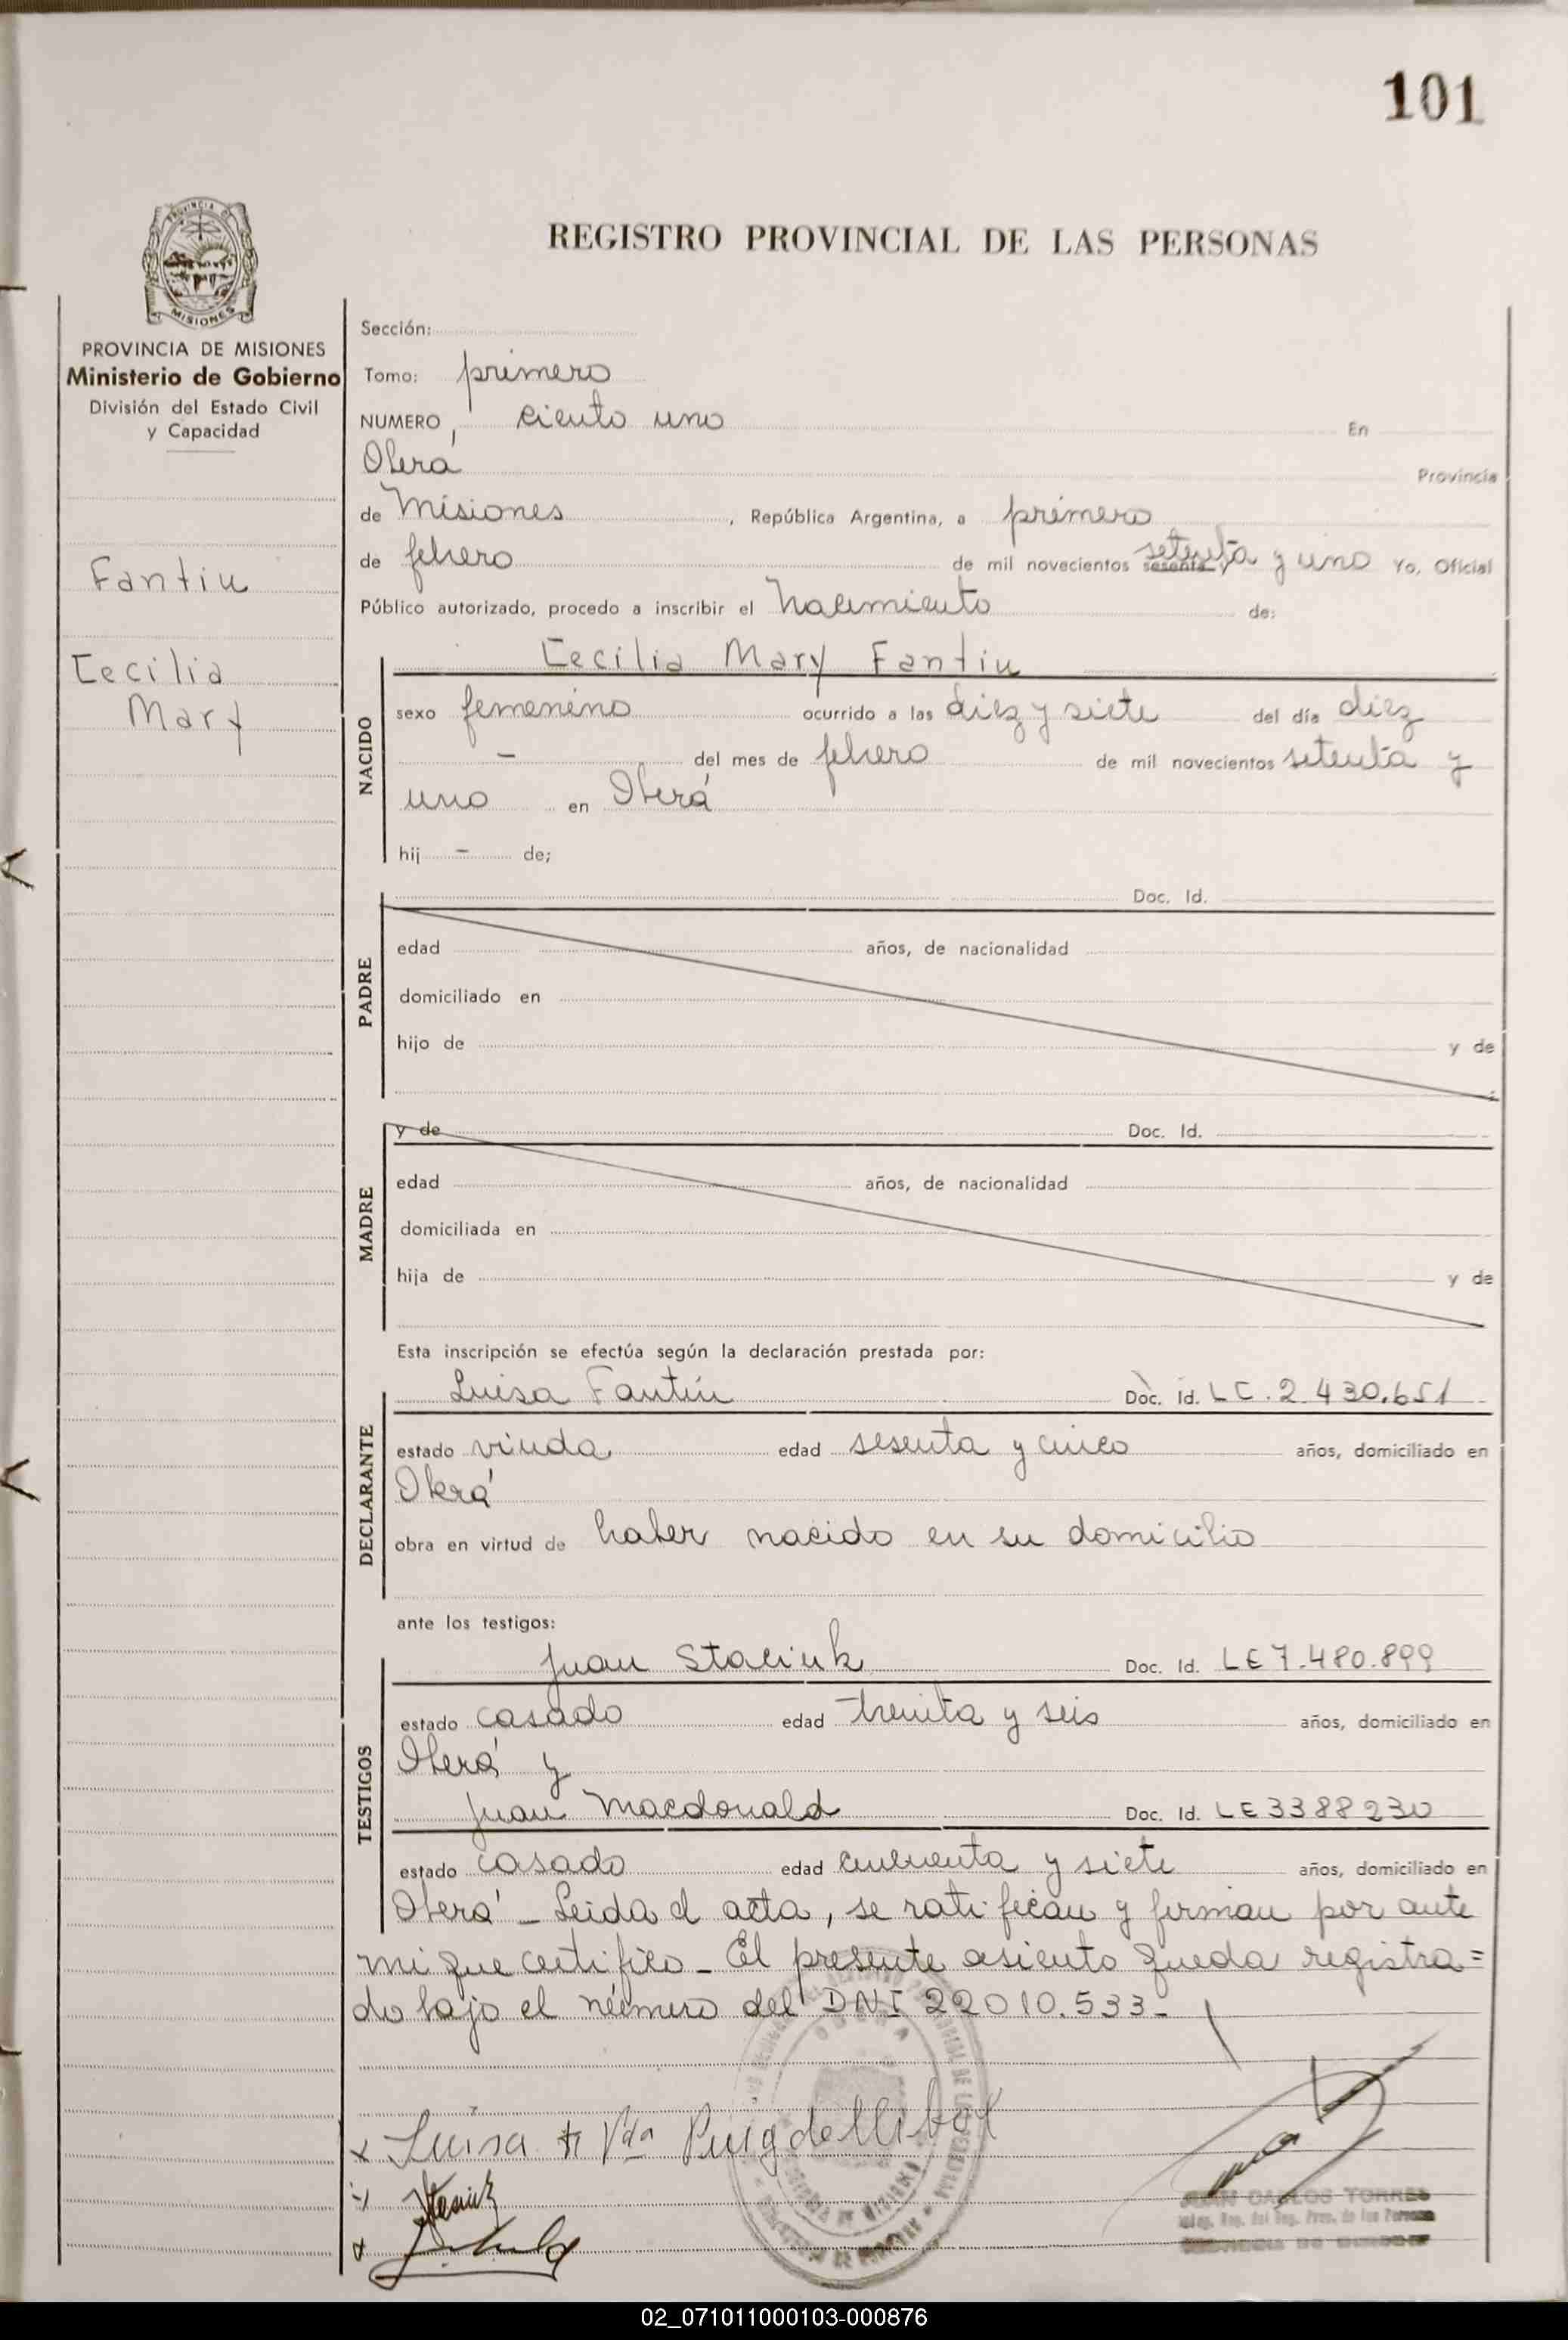 101
PROVINCIA DE
MISIONES
REGISTRO PROVINCIAL DE LAS PERSONAS
PROVINCIA DE MISIONES
Ministerio de Gobierno
División del Estado Civil
y Capacidad
Fantiu
Cecilia
Mary
Sección:
Tomo: primero
NUMERO, ciento uno En
Oberá Provincia
de Misiones, República Argentina, a primero
de febrero de mil novecientos sesenta y setenta y uno Yo, Oficial
Público autorizado, procedo a inscribir el nacimiento de:
NACIDO
Cecilia Mary Fantiu
sexo femenino ocurrido a las diez y siete del día diez
- del mes de febrero de mil novecientos setenta y
uno en Oberá
hij - de;
PADRE
Doc. Id.
edad años, de nacionalidad
domiciliado en
hijo de y de
MADRE
y de Doc. Id.
edad años, de nacionalidad
domiciliada en
hija de y de
Esta inscripción se efectúa según la declaración prestada por:
DECLARANTE
Luisa Fantiu Doc. Id. LC. 2.430.651
estado viuda edad sesenta y cinco años, domiciliado en
Oberá
obra en virtud de haber nacido en su domicilio
ante los testigos:
TESTIGOS
Juan Staciuk Doc. Id. LE 7.480.899
estado casado edad treinta y seis años, domiciliado en
Oberá y
Juan Macdonald Doc. Id. LE 3388230
estado casado edad cincuenta y siete años, domiciliado en
Oberá - Leida el acta, se ratifican y firman por ante
mi que certifico - El presente asiento queda registra=
do bajo el número del DNI 22010.533-
x Luisa Vda Puigdellibol
JUAN CARLOS TORRES
02_071011000103-000876